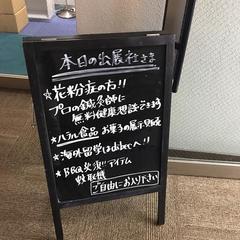 本日の出展社さま
☆花粉症の方!!
プロの鍼灸師に
無料健康相談できます
☆ハラル食品 お菓子の展示
☆海外留学はdibecへ!!
☆BBQ炎涙!! アイテム
ご自由にお入り下さい